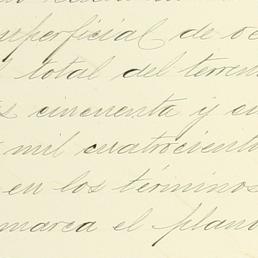 superficial de oc
l total del terren
s cincuenta y cu
mil cuatrocient
en los términos
marca el plano